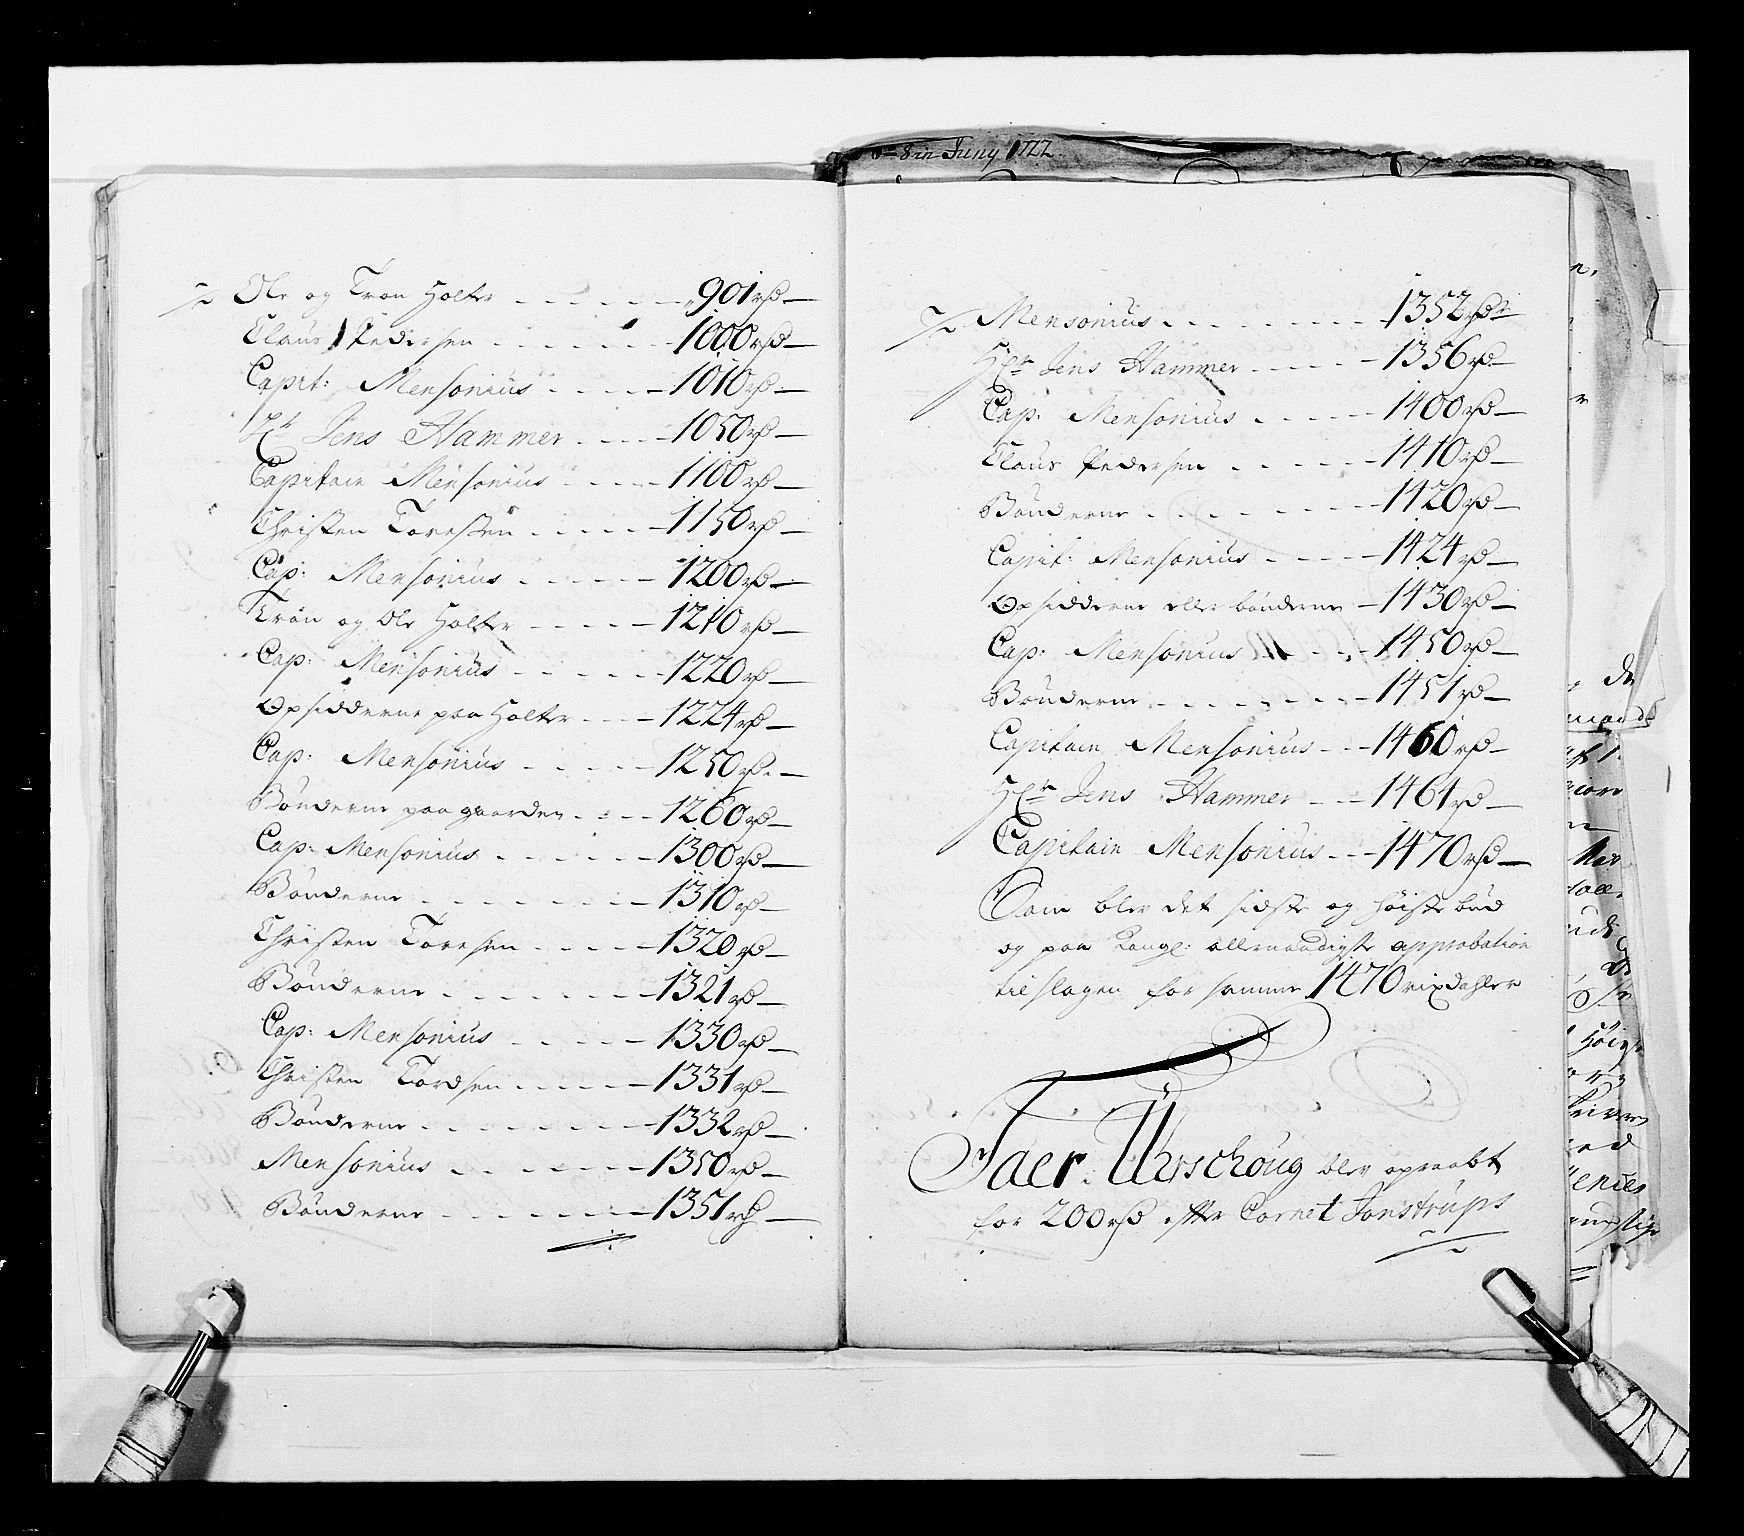 Ole og Tron Holter - - - - - - 901 rd
Claus Pedersen - - - - - - 1000 rd
Capit: Mensonius - - - - - 1010 rd
Hr Jens Hammer - - - - 1050 rd
Capitain Mensonius - - - - 1100 rd
Christen Toresen - - - - - 1150 rd
Cap: Mensonius - - - - - 1200 rd
Tron og Ole Holter - - - - 1210 rd
Cap: Mensonius - - - - - 1220 rd
Opsidderne paa Holter - - - 1224 rd
Cap: Mensonius - - - - - 1250 rd
Bønderne paa gaarden - - - 1260 rd
Cap: Mensonius - - - - - 1300 rd
Bønderne - - - - - - - 1310 rd
Christen Toresen - - - - 1320 rd
Bønderne - - - - - - 1321 rd
Cap: Mensonius - - - - - 1330 rd
Christen Toresen - - - - - 1331 rd
Bønderne - - - - - - - 1332 rd
Mensonius - - - - - - 1350 rd
Bønderne - - - - - - - 1351 rd
8de Juny 1722
Mensonius - - - - - - - 1352 rdr
Hr Jens Hammer - - - - 1356 rd
Cap: Mensonius - - - - 1400 rd
Claus Pedersen - - - - - 1410 rd
Bønderne - - - - - - - 1420 rd
Capit: Mensonius - - - - 1424 rd
Opsidderne eller bønderne - 1430 rd
Cap: Mensonius - - - - 1450 rd
Bønderne - - - - - - - 1451 rd
Capitain Mensonius - - - 1460 rd
Hr Jens Hammer - - - 1464 rd
Capitain Mensonius - - - 1470 rd
Som blev det sidste og høiste bud
og paa Kongl: allernaadigste approbation
tilslagen for samme 1470 rixdahler
Faer: Uhrschoug blev opraabt
for 200 rd efter Cornet Jonstrups